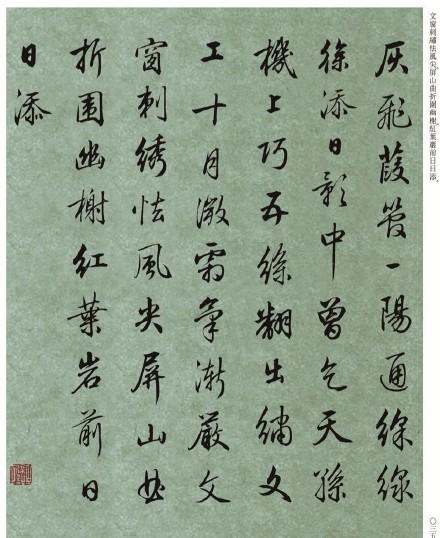 文窗刺繡怯風尖，屏山曲折圍幽榭，紅葉巖前日日添。
灰飛葭管一陽通綵線
徐添日影中曾乞天孫
機上巧五絲翻出繡文
工十月微霜氣漸嚴文
窗刺绣怯風尖屏山曲
折圍幽榭紅葉岩前日
日添
〇三五